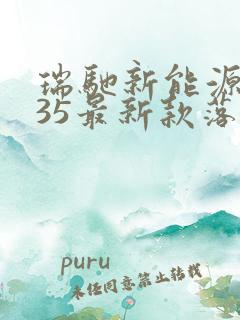 瑞驰新能源
35最新款落
puru
未经同意禁止转载